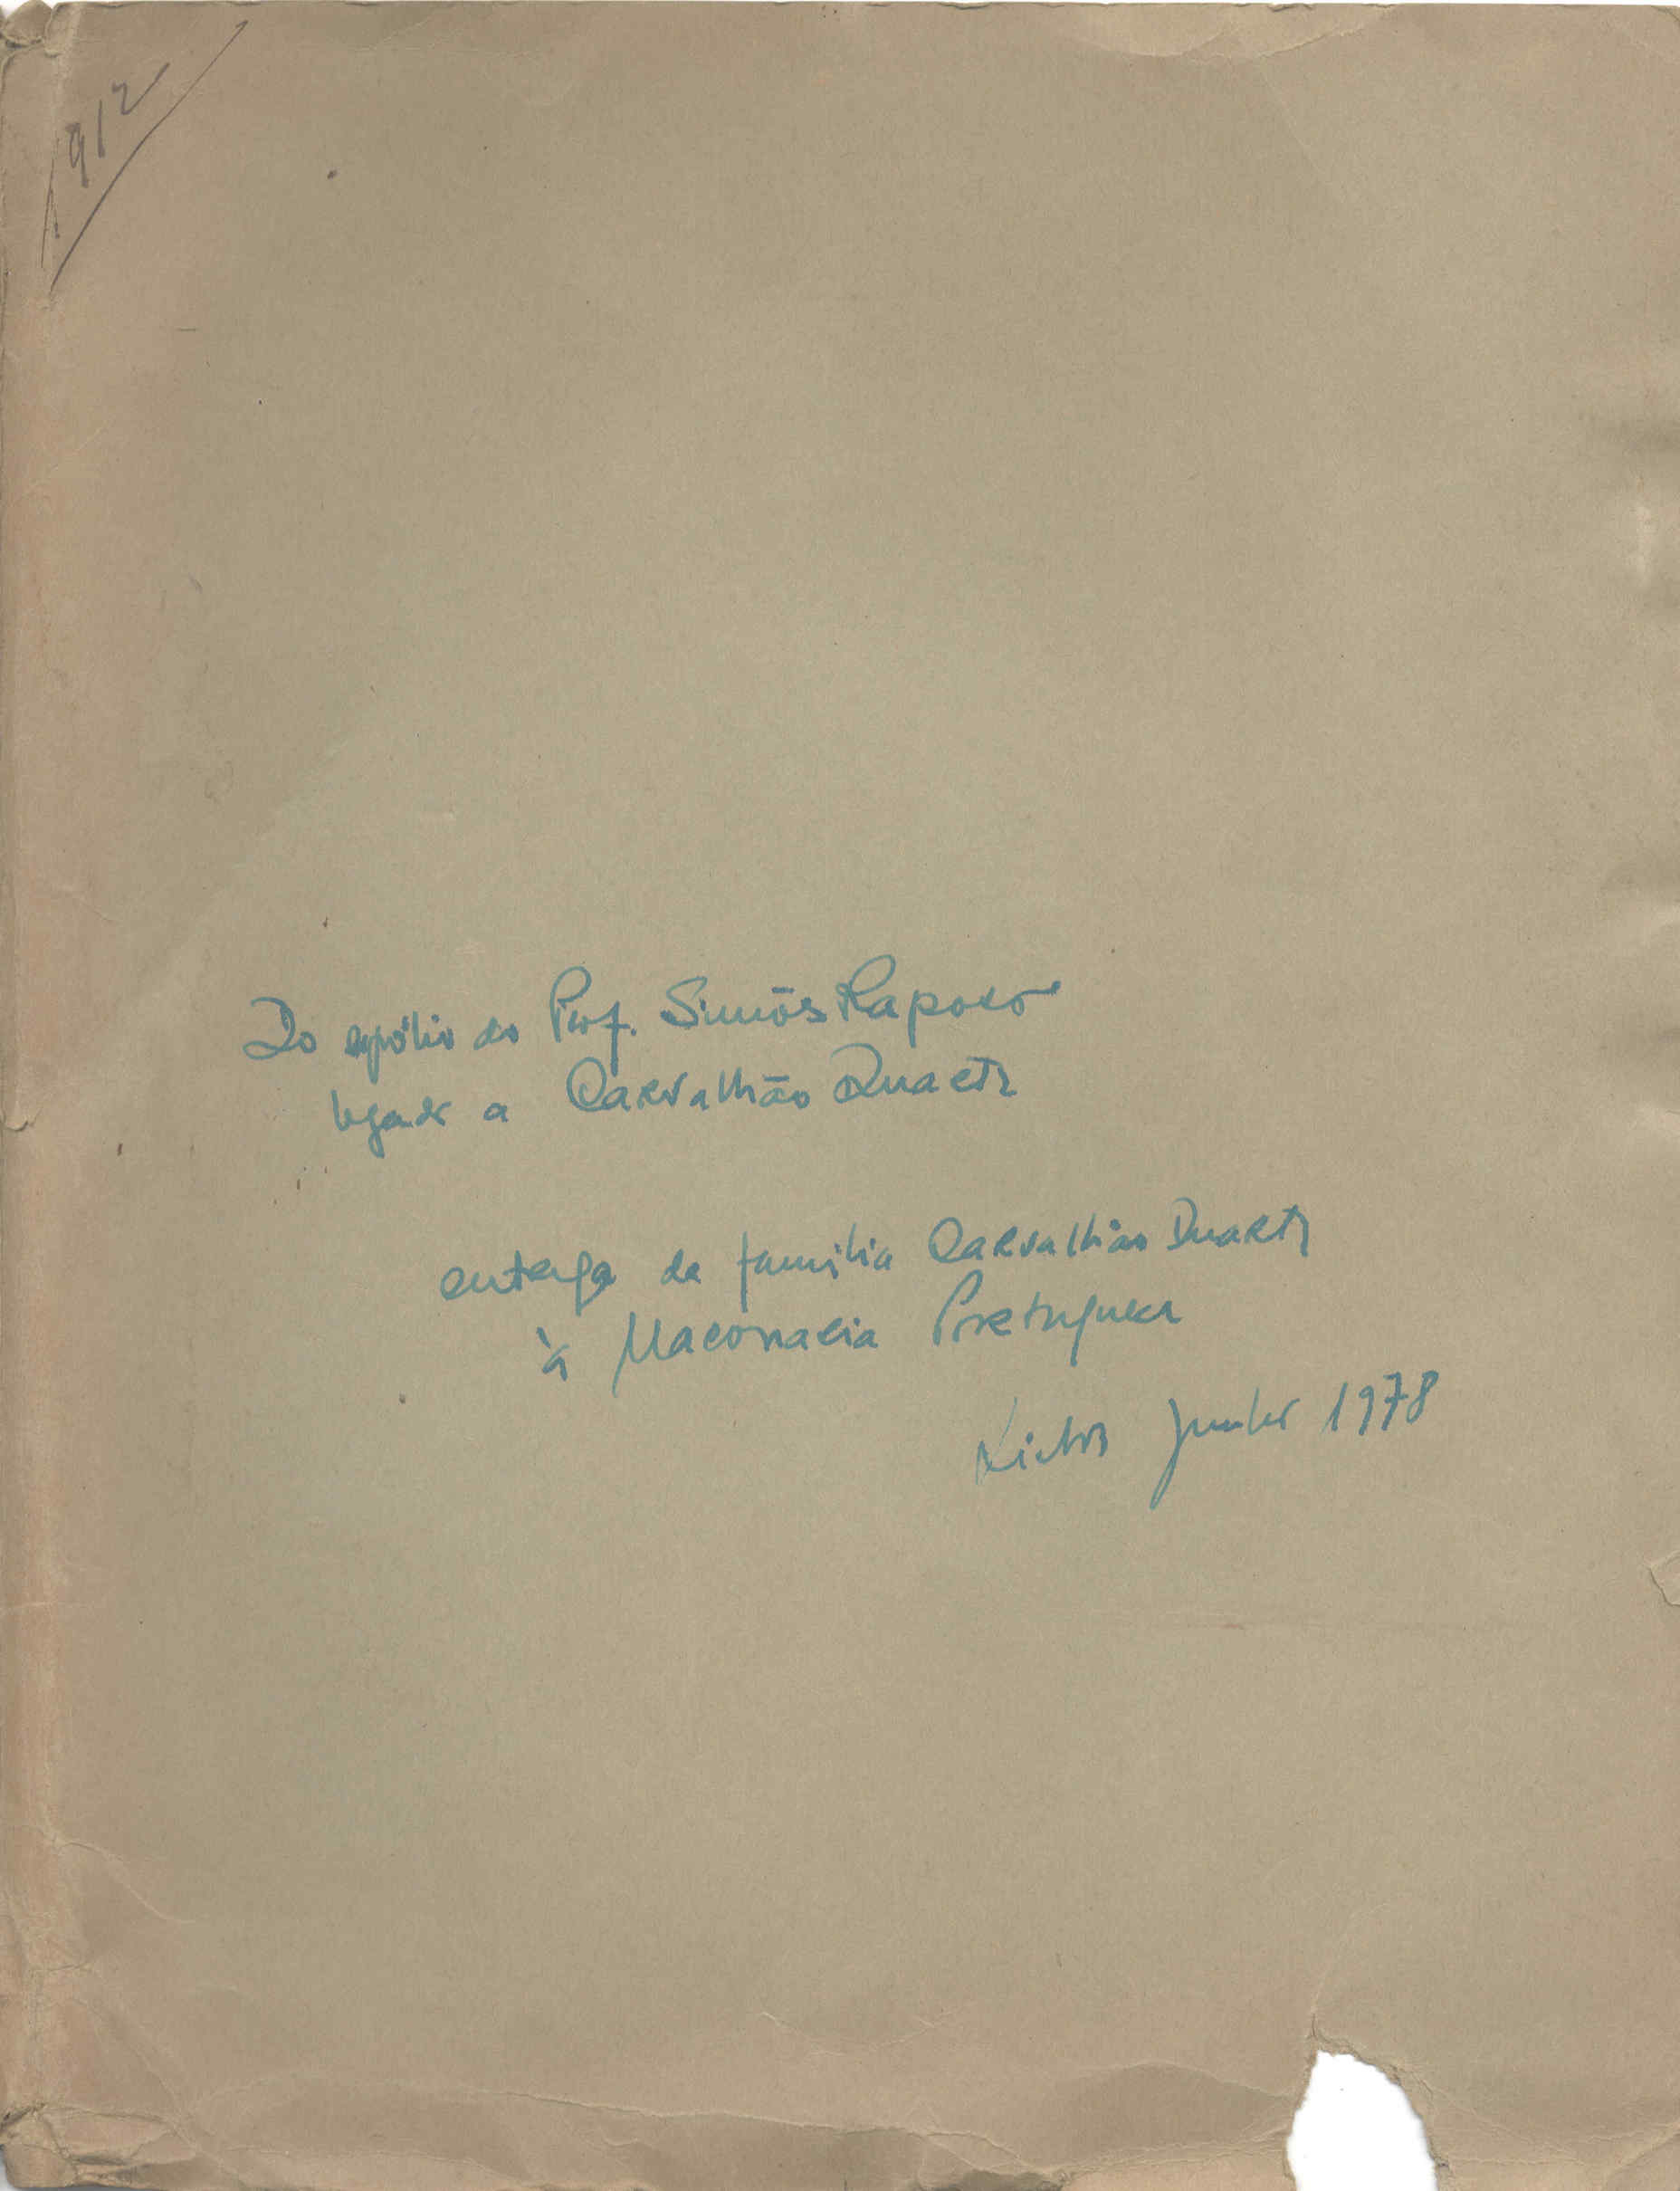 1912
Do espólio do Prof. Simões Raposo
legado a Carvalhão Duarte
entrega da família Carvalhão Duarte
à Maçonaria Portuguesa
Lisboa Junho 1978